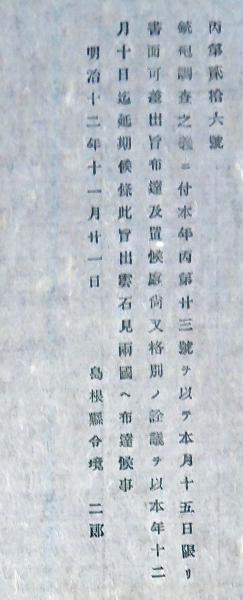 丙第貳拾六號
銃砲調査之義ニ付本年丙第廿三號ヲ以テ本月十五日限リ
書面可差出旨布達及置候處尚又格別ノ詮議ヲ以本年十二
月十日迄延期候條此旨出雲石見兩國ヘ布達候事
明治十二年十一月廿一日　島根縣令境　二郎